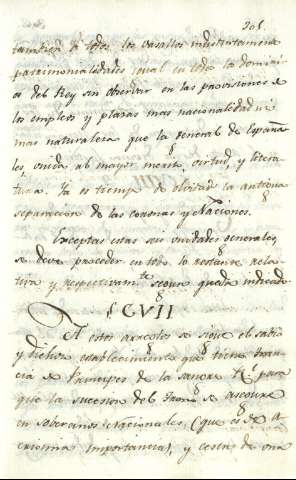 201.
à todos los vasallos indistintamente
igual en todos la domini
del Rey sin observar en las provisiones de
los empleos y plazas mas nacionalidad ni
mas naturaleza que la general de Españo
les, unida al mayor merito, virtud, y litera
tura. Ya es tiempo de olvidar la antigua
separacion de las coronas y Naciones.
Exceptas estas seis unidades generales,
se deve proceder en todo lo restante rela
tiva y respectivam.te segun queda indicado.
§ CVII
A estos articulos se sigue el sabio
y dichoso establecimiento que tiene
de Principes de la sangre R.l para
que la sucesion del Trono se asegure
en soberanos Nacionales (que es de
importancia), y